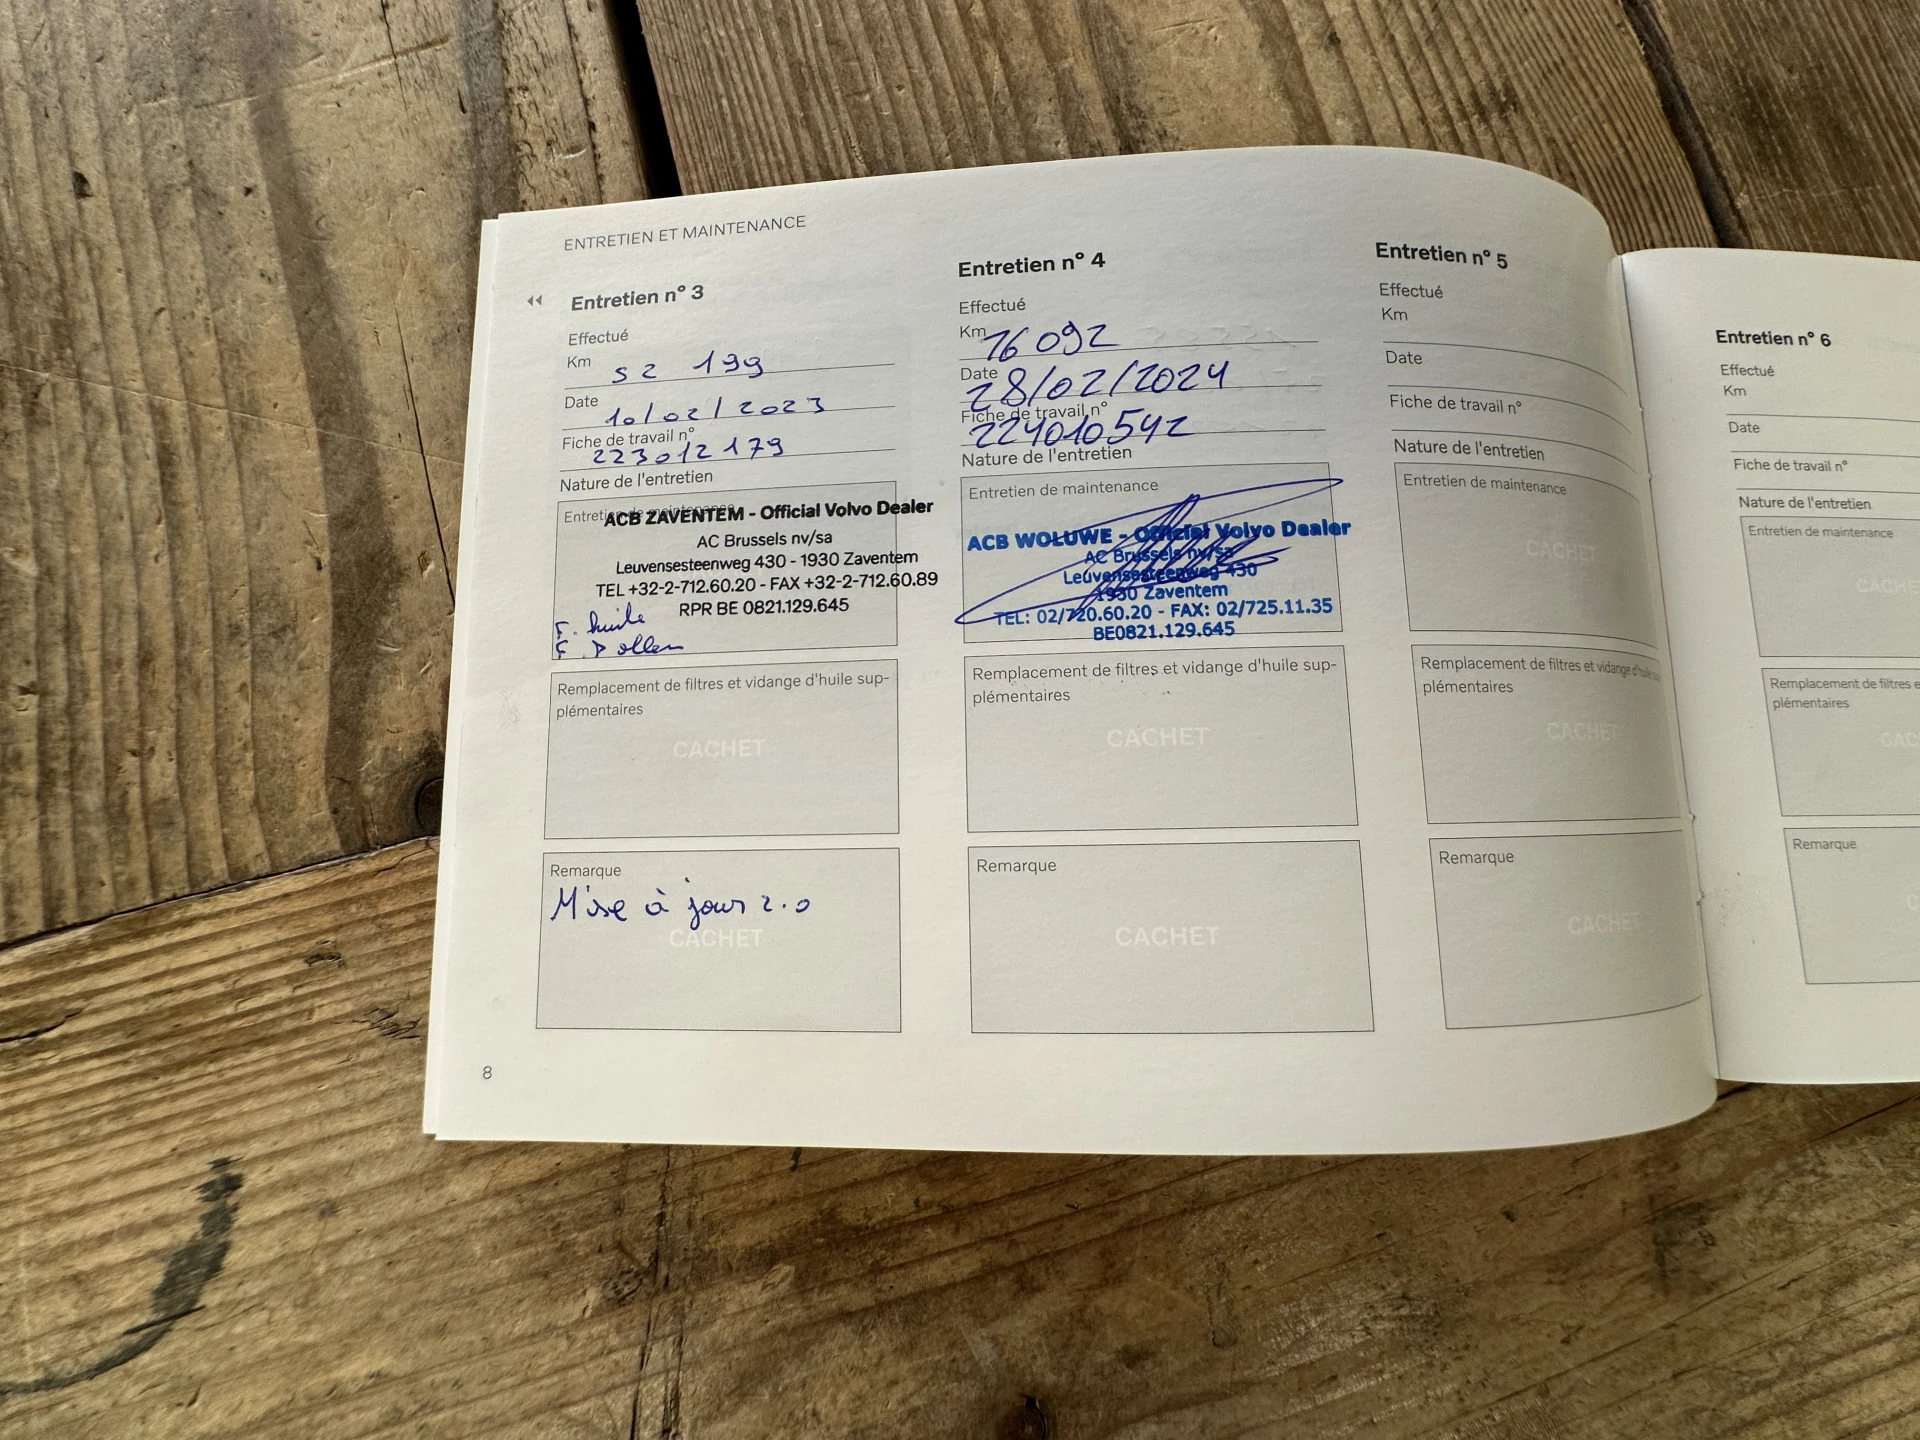 ENTRETIEN ET MAINTENANCE
Entretien n° 3
Effectué
Km 52 199
Date 10/02/2023
Fiche de travail n° 223012179
Nature de l'entretien
Entretien de maintenance
ACB ZAVENTEM - Official Volvo Dealer
AC Brussels nv/sa
Leuvensesteenweg 430 - 1930 Zaventem
TEL +32-2-712.60.20 - FAX +32-2-712.60.89
RPR BE 0821.129.645
F. huile
F. Pollen
Remplacement de filtres et vidange d'huile sup-
plémentaires
CACHET
Remarque
Mise à jour 2.0
CACHET
8
Entretien n° 4
Effectué
Km 76 092
Date 28/02/2024
Fiche de travail n° 224010542
Nature de l'entretien
Entretien de maintenance
ACB WOLUWE - Official Volvo Dealer
AC Brussels nv/sa
Leuvensesteenweg 430
1930 Zaventem
TEL: 02/720.60.20 - FAX: 02/725.11.35
BE0821.129.645
Remplacement de filtres et vidange d'huile sup-
plémentaires
CACHET
Remarque
CACHET
Entretien n° 5
Effectué
Km
Date
Fiche de travail n°
Nature de l'entretien
Entretien de maintenance
CACHET
Remplacement de filtres et vidange d'huile
plémentaires
CACHET
Remarque
CACHET
Entretien n° 6
Effectué
Km
Date
Fiche de travail n°
Nature de l'entretien
Entretien de maintenance
CACHE
Remplacement de filtres e
plémentaires
CAC
Remarque
C